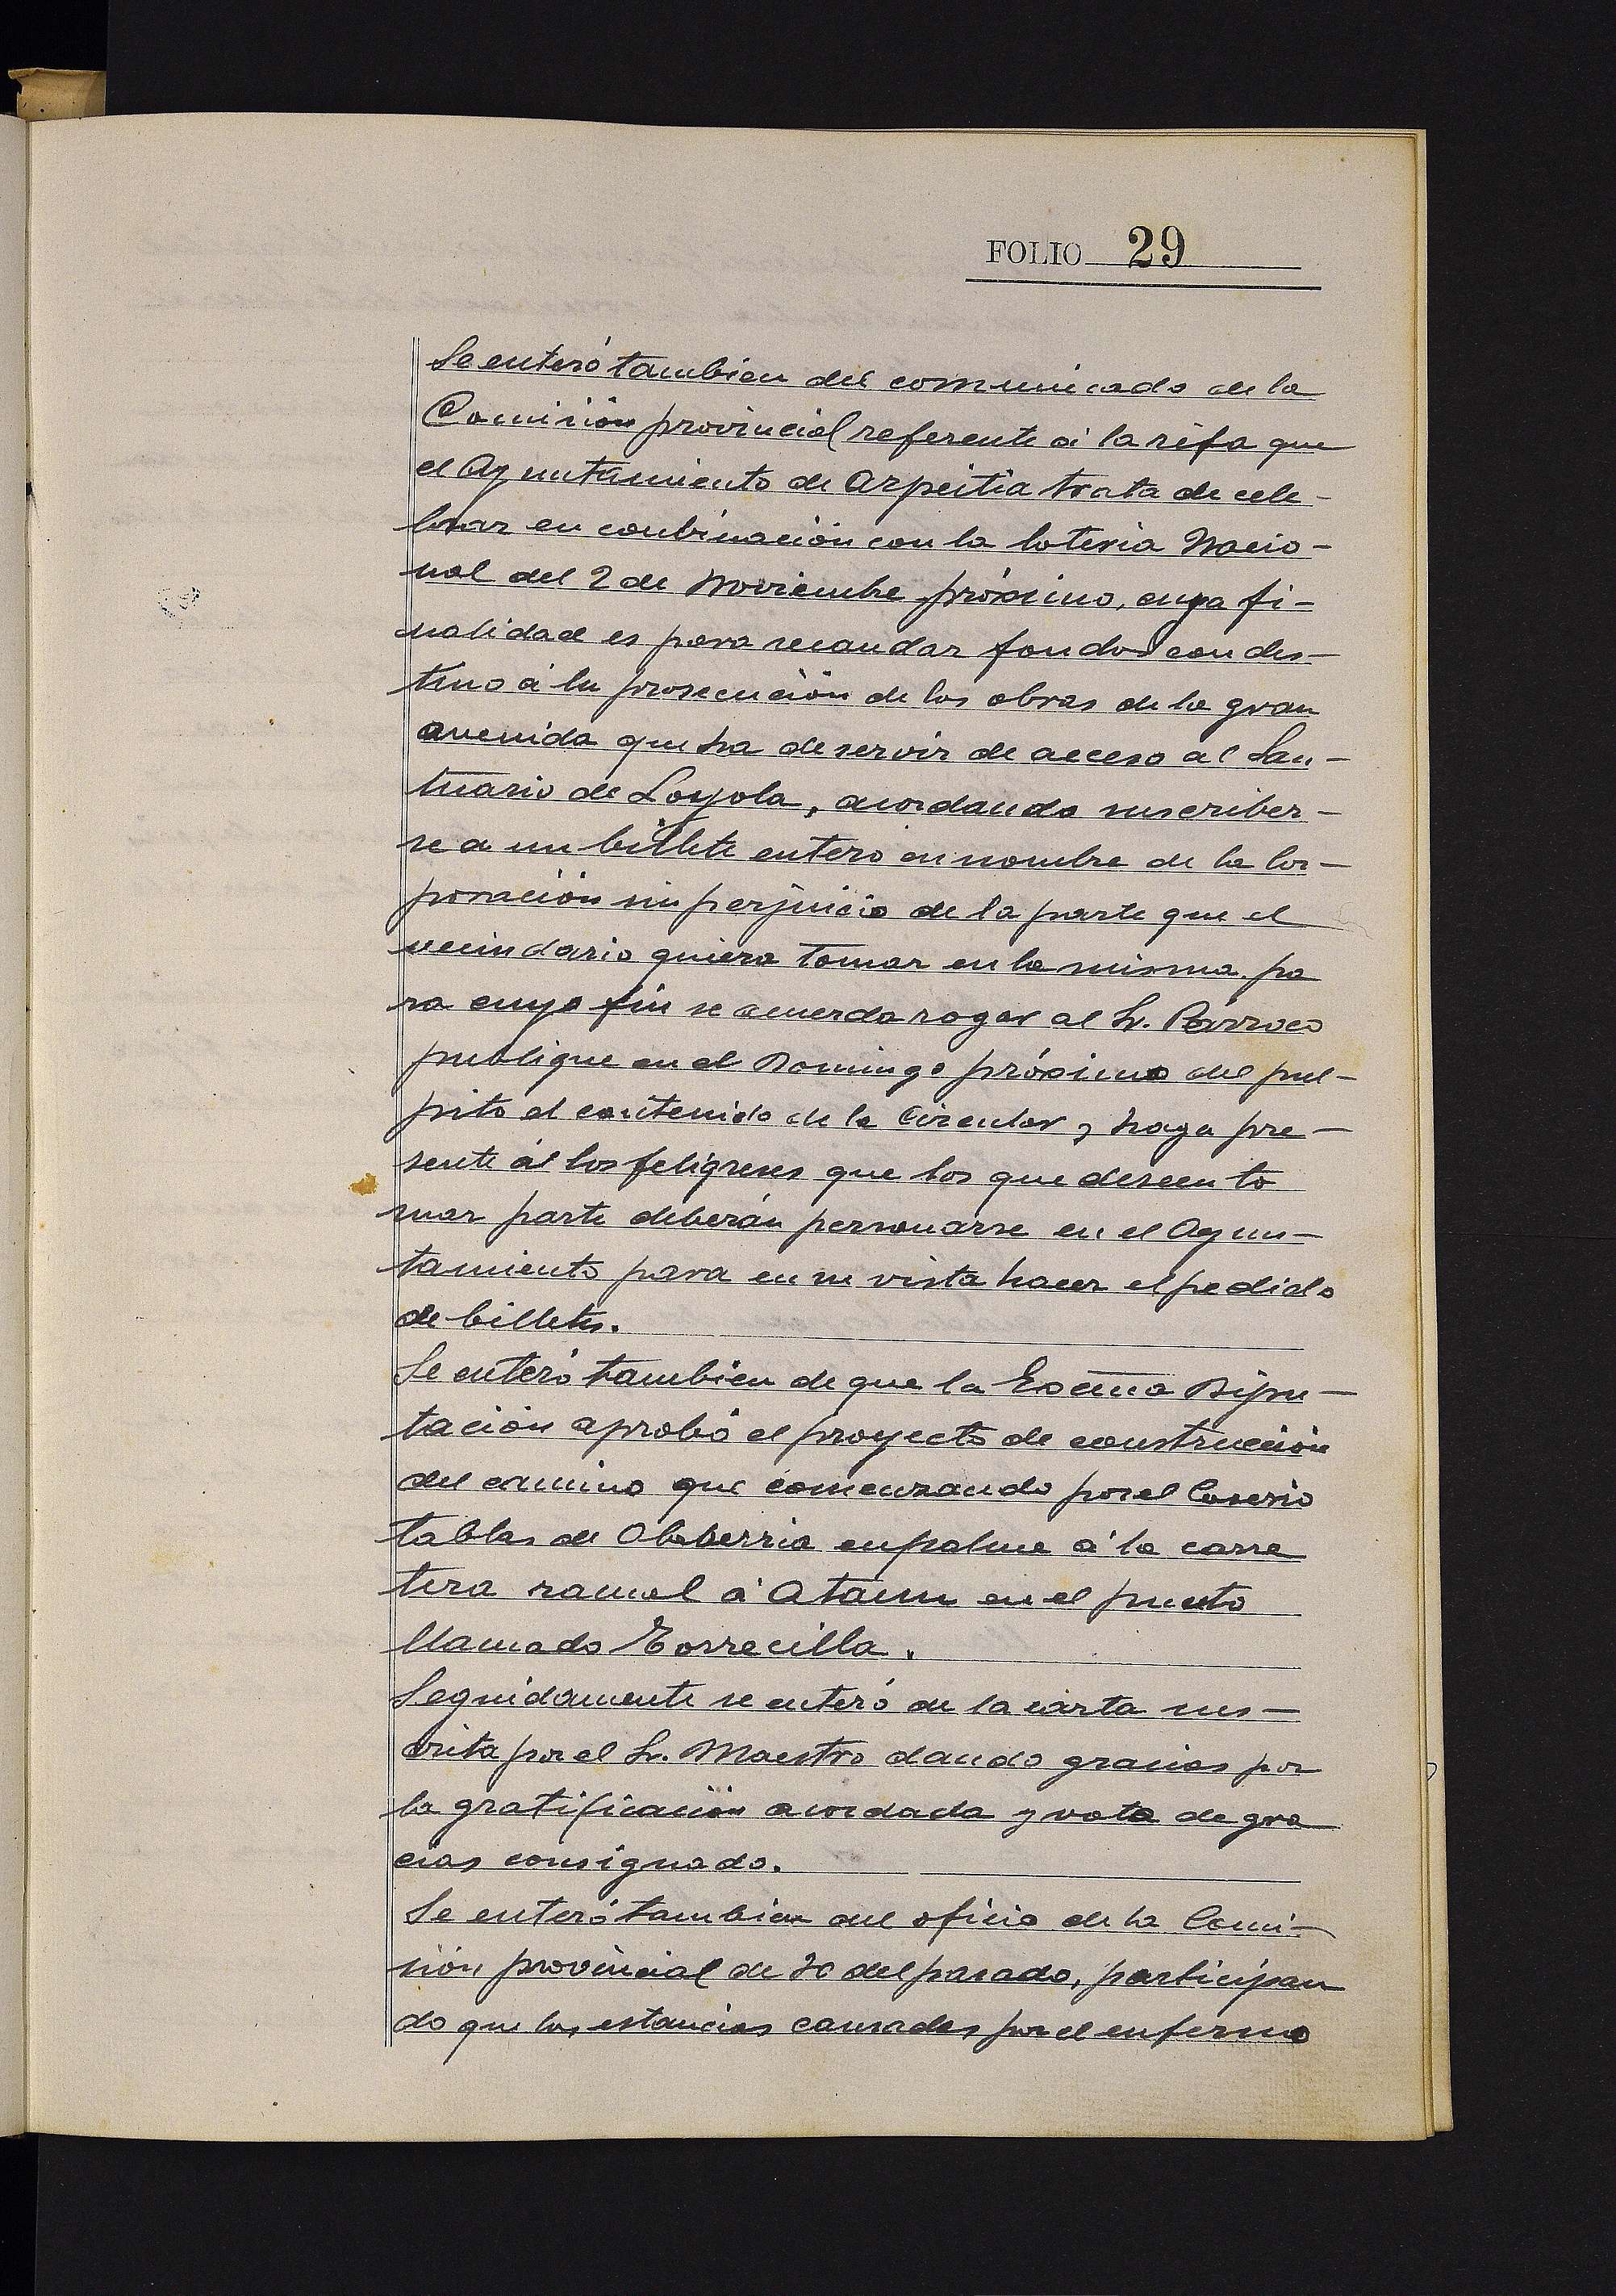 FOLIO 29
Se enteró tambien del comunicado de la
Comisión provincial referente á la rifa que
el Ayuntamiento de Azpeitia trata de cele-
brar en conbinación con la loteria Nacio-
nal del 2 de Noviembre próximo, cuya fi-
nalidad es para recaudar fondos con des-
tino á la prosecución de las obras de la gran
avenida que ha de servir de acceso al San-
tuario de Loyola, acordando suscriber-
se a un billete entero en nombre de la Cor-
poración sin perjuicio de la parte que el
vecindario quiera tomar en la misma. pa
ra cuyo fin se acuerda rogar al Sr. Párroco
publique en el Domingo próximo del pul-
pito el contenido de la Circular y haga pre-
sente al los feligreses que los que deseen to
mar parte deberán personarse en el Ayun-
tamiento para en su vista hacer el pedido
de billetes.
Se enteró tambien de que la Excma Dipu-
tación aprobó el proyecto de construcción
del camino que comenzando por el Caserio
tablas de Olaberria enpalme á la carre
tera ramal á Ataun en el punto
llamado Torrecilla.
Seguidamente se enteró de la carta sus-
crita por el Sr. Maestro dando gracias por
la gratificación acordada y voto de gra
cias consignado.
Se enteró tambien del oficio de la Comi-
sión provincial de 30 del pasado, participan
do que las estancias causadas por el enfermo